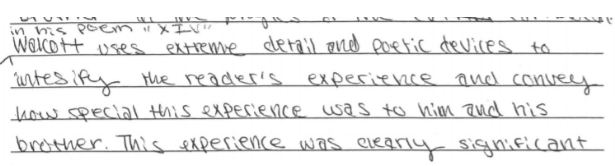 in his poem "XIV"
Walcott uses extreme detail and poetic devices to
intesify the reader's experience and convey
how special this experience was to him and his
brother. This experience was clearly significant